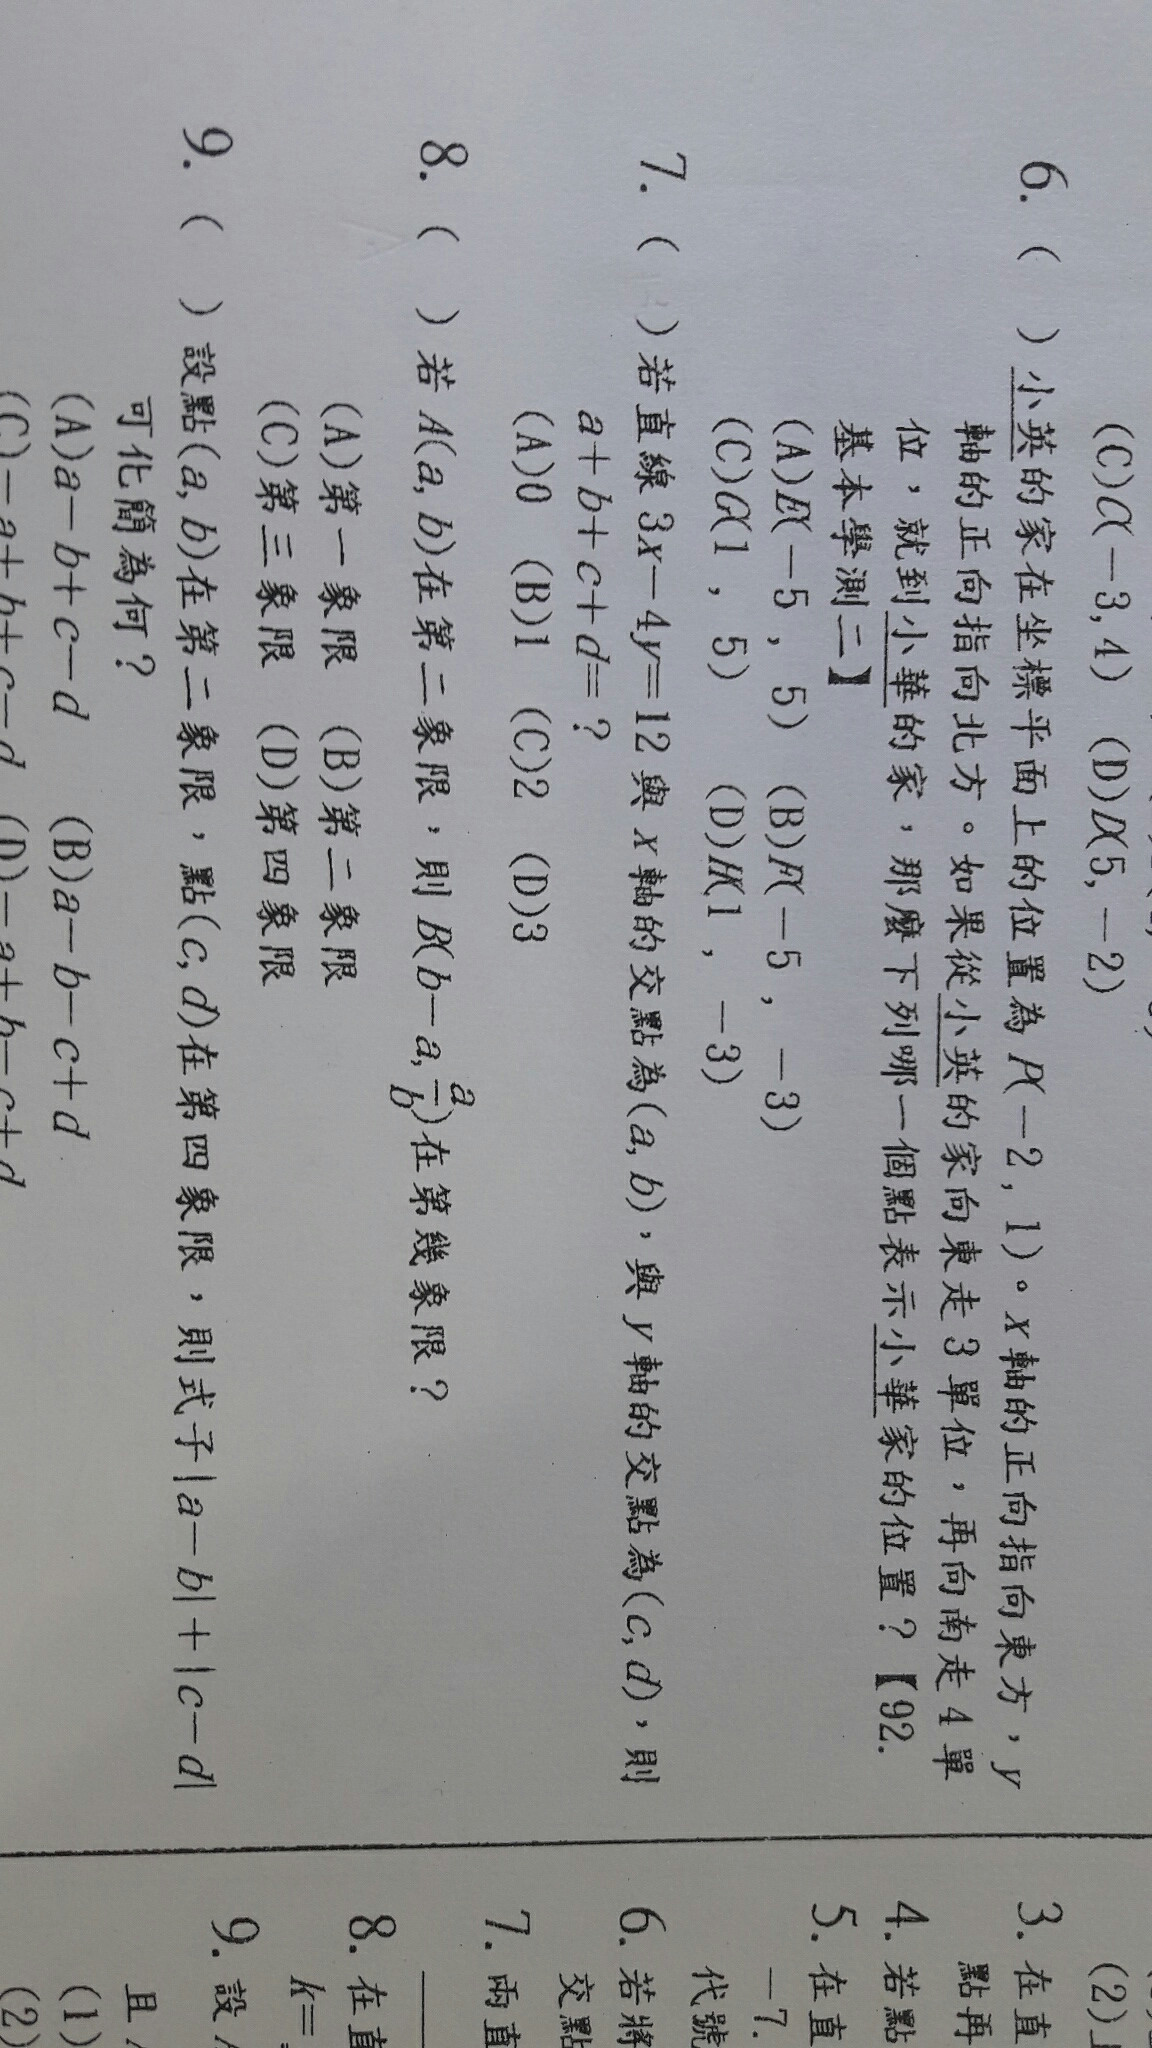 (C)C(-3,4) (D)D(5,-2)
6. ( )小英的家在坐標平面上的位置為 P(-2,1)。x 軸的正向指向東方,y
軸的正向指向北方。如果從小英的家向東走 3 單位,再向南走 4 單
位,就到小華的家,那麼下列哪一個點表示小華家的位置?【92.
基本學測二】
(A)E(-5,5) (B)F(-5,-3)
(C)G(1,5) (D)H(1,-3)
7. ( )若直線 3x-4y=12 與 x 軸的交點為(a,b),與 y 軸的交點為(c,d),則
a+b+c+d=?
(A)0 (B)1 (C)2 (D)3
8. ( )若 A(a,b)在第二象限,則 B(b-a,a/b)在第幾象限?
(A)第一象限 (B)第二象限
(C)第三象限 (D)第四象限
9. ( )設點(a,b)在第二象限,點(c,d)在第四象限,則式子|a-b|+|c-d|
可化簡為何?
(A)a-b+c-d (B)a-b-c+d
(C)-a+b+c-d (D)-a+b-c+d
(2)
3. 在直
點再
4. 若點
5. 在直
-7.
代號
6. 若將
交點
7. 兩直
8. 在直
k=
9. 設
且
(1)
(2)